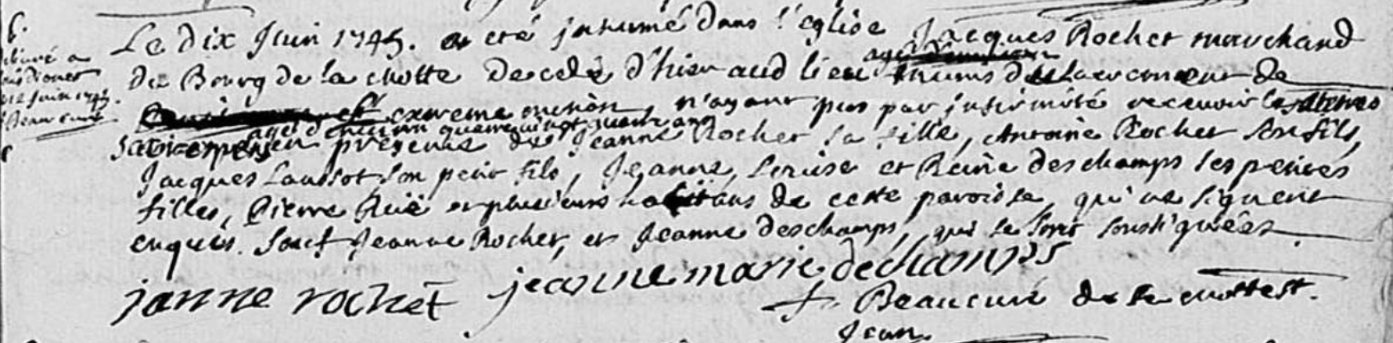 Le Dix Juin 1745. a été inhumé dans l'église Jacques Rochet marchand
du Bourg de la Motte Decedé d'hier aud lieu munis du sacrement de
extreme onction, n'ayant pus par infirmité recevoir les autres
agé d'environ quatre vingt quatre ans
sacremens en presence de Jeanne Rochet sa fille, Antoine Rochet son fils,
Jacques Laussot son petit fils, Jeanne, Louise et Reine deschamps ses petites
filles, Pierre et plusieurs habitans de cette paroisse qui ne signent
enquis. Sauf Jeanne Rochet, et Jeanne deschamps, qui se sont soussignées.
janne rochet jeanne marie dechamps
Beau curé de la Motte St.
Jean.